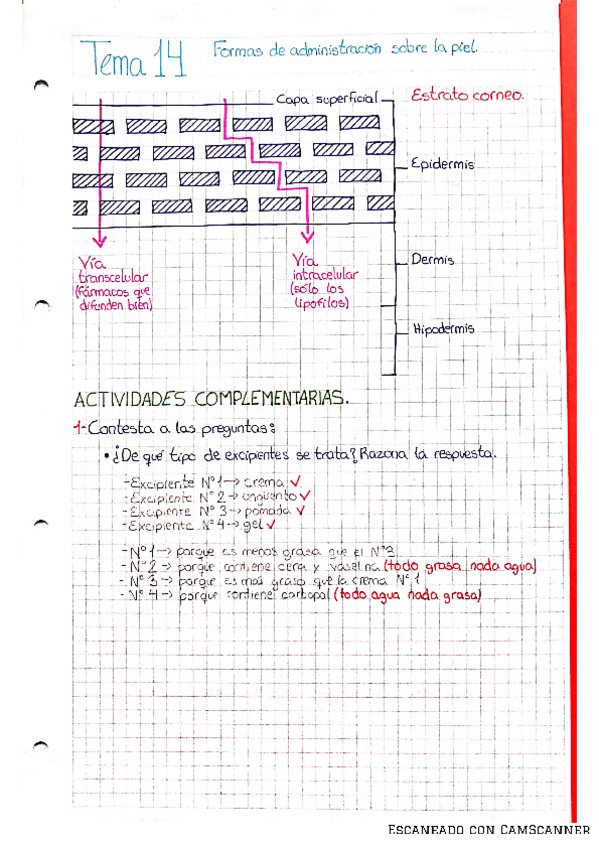 Tema 14
Formas de administración sobre la piel.
Capa superficial
Estrato corneo.
Epidermis
Vía
transcelular
(fármacos que
difunden bien)
Vía
intracelular
(sólo los
lipofilos)
Dermis
Hipodermis
ACTIVIDADES COMPLEMENTARIAS.
1-Contesta a las preguntas:
• ¿De qué tipo de excipientes se trata? Razona la respuesta.
-Excipiente Nº1→ crema ✓
-Excipiente Nº2→ ungüento ✓
-Excipiente Nº3→ pomada ✓
-Excipiente Nº4→ gel ✓
-Nº1→ porque es menos grasa que el Nº3
-Nº2→ porque contiene cera y vaselina (todo grasa nada agua)
-Nº3→ porque es más graso que la crema Nº1
-Nº4→ porque contiene carbopol (todo agua nada grasa)
ESCANEADO CON CAMSCANNER